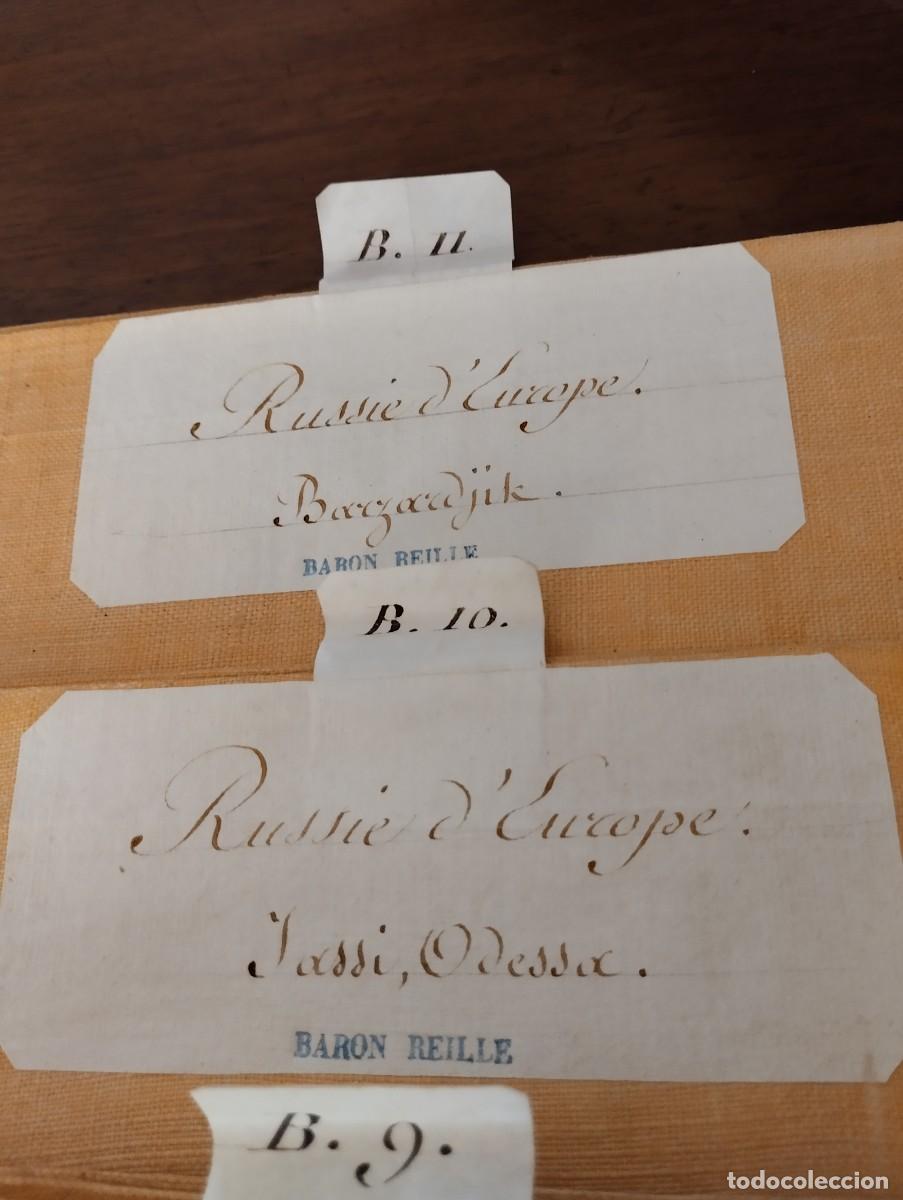 B. 11.
Russie d'Europe.
Bazardjik.
BARON REILLE
B. 10.
Russie d'Europe.
Jassi, Odessa.
BARON REILLE
B. 9.
todocoleccion